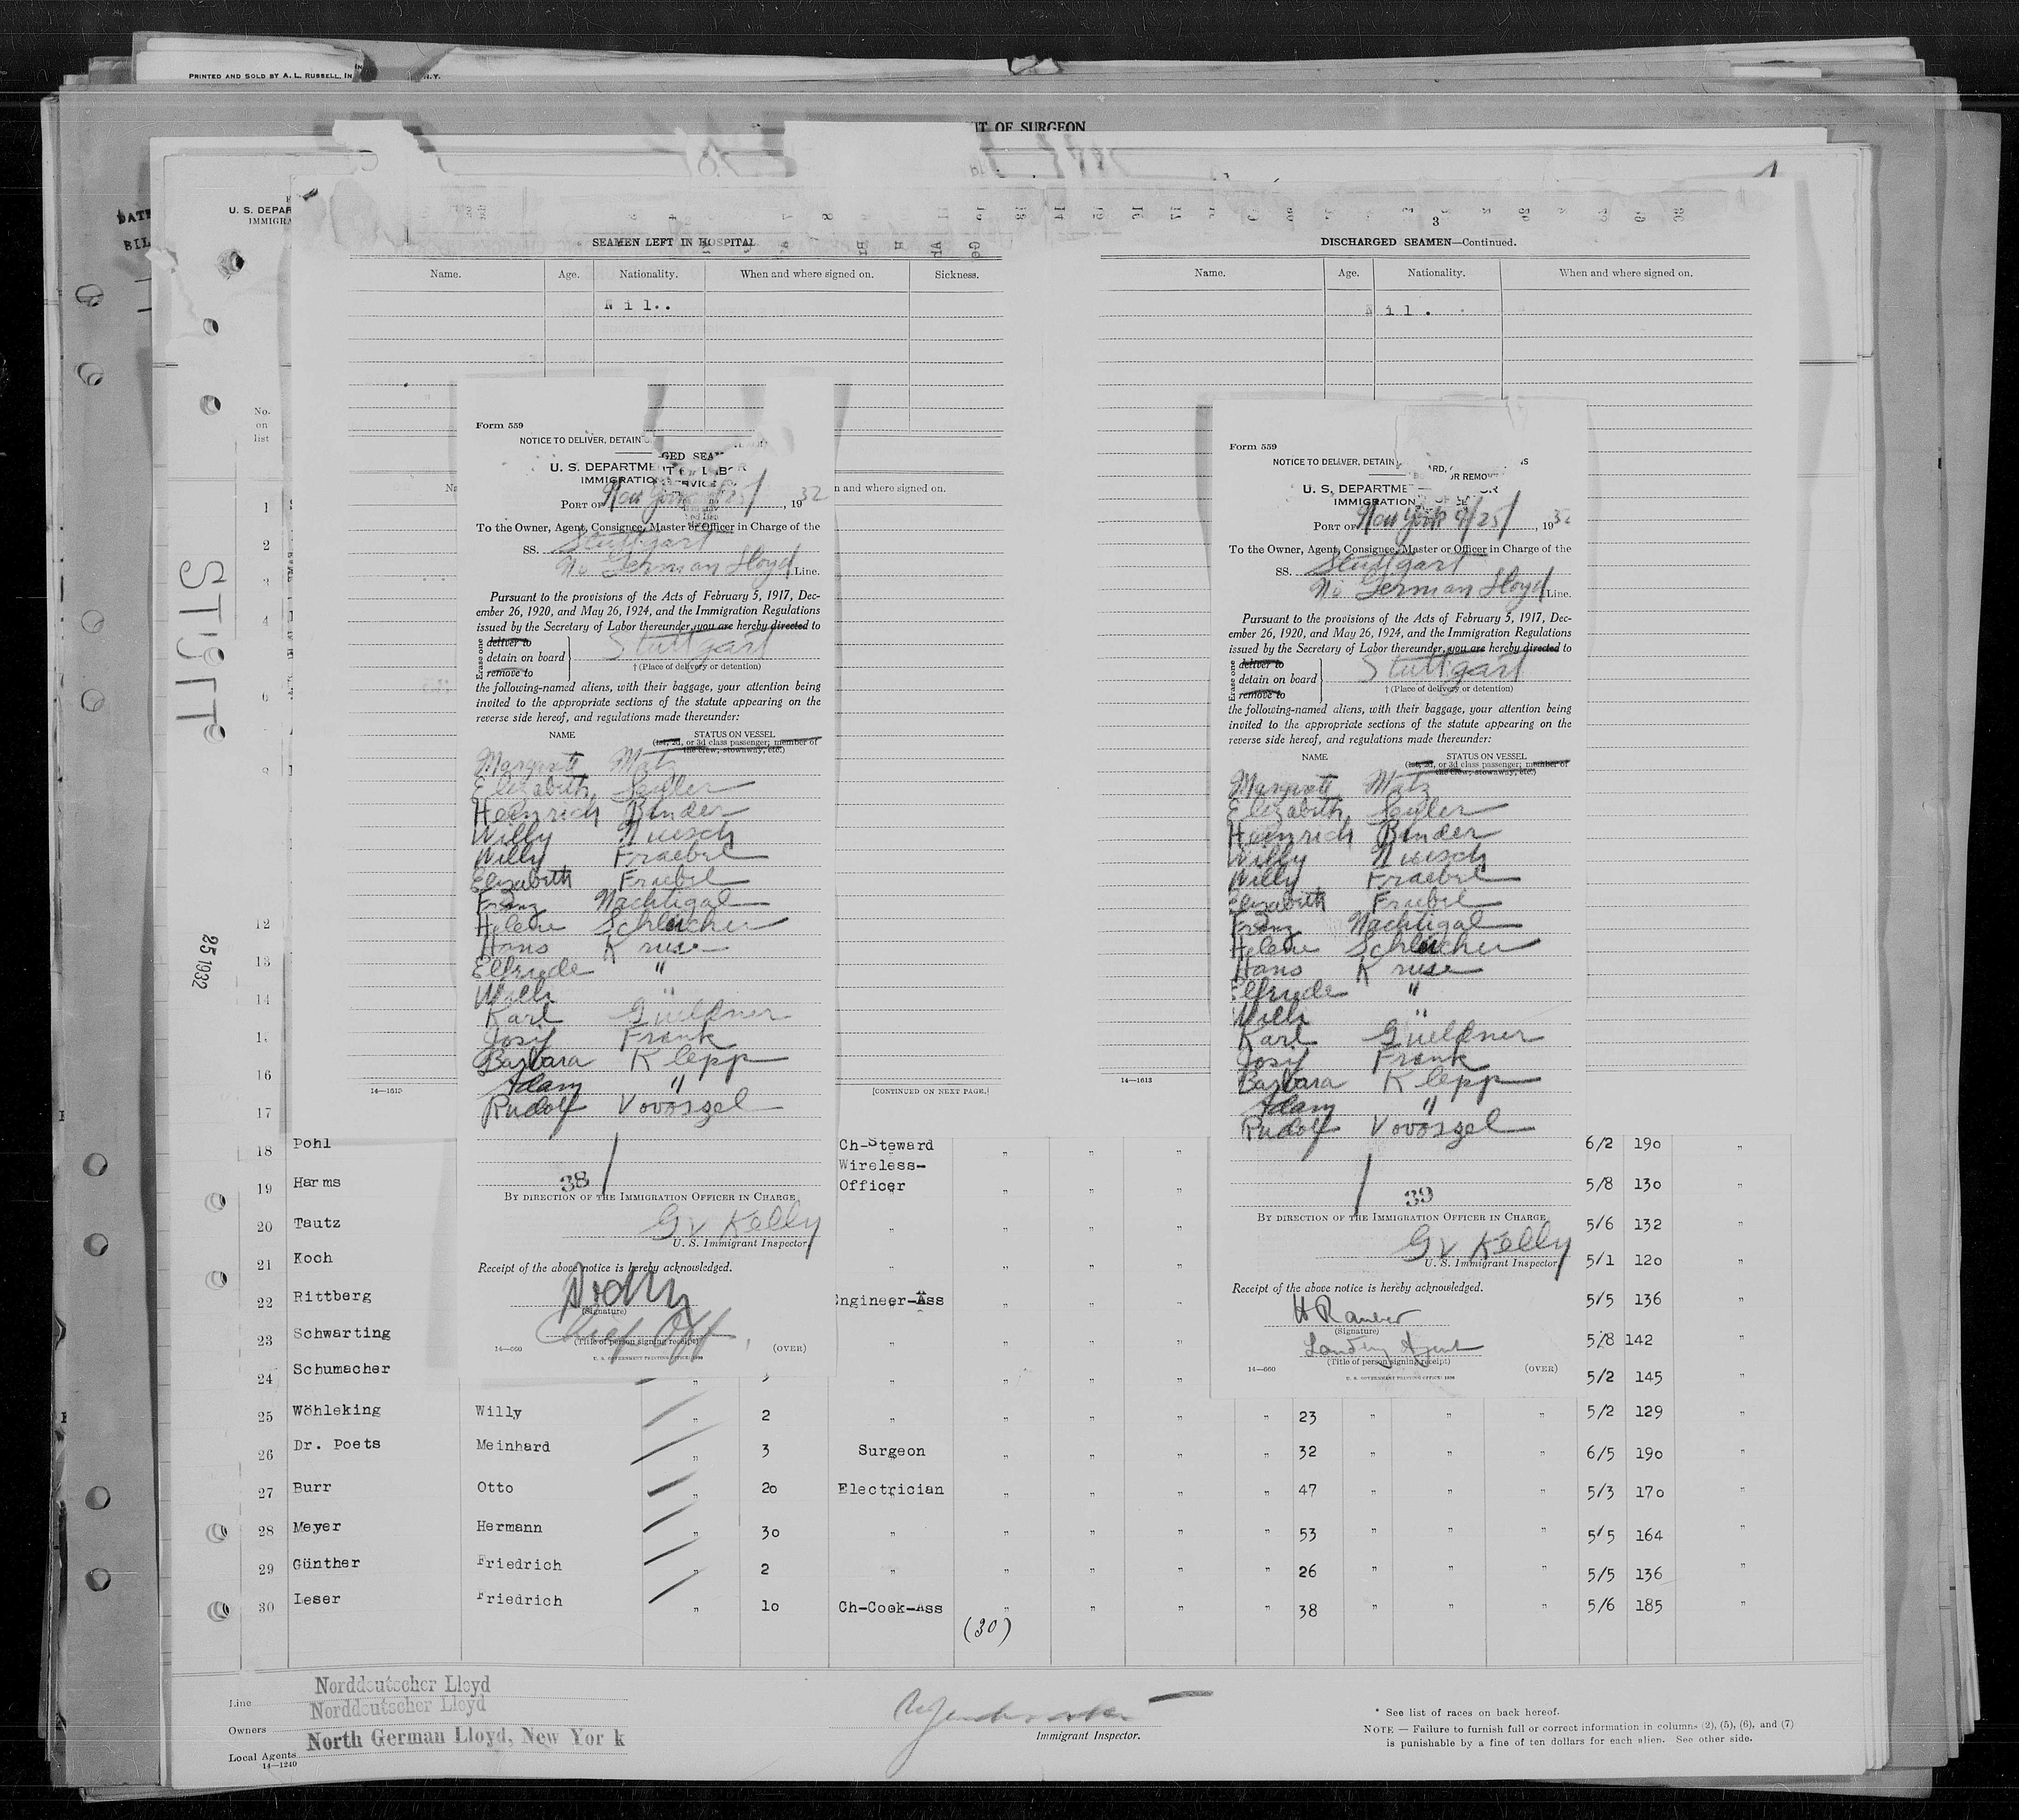 PRINTED AND SOLD BY A. L. RUSSELL, IN
N.Y.
T OF SURGEON
U. S. DEPAR
IMMIGRA
DATE
BIL
No.
on
list
STUTT
25 1932
SEAMEN LEFT IN HOSPITAL
Name. Age. Nationality. When and where signed on. Sickness.
Nil..
3
DISCHARGED SEAMEN—Continued.
Name. Age. Nationality. When and where signed on.
Nil.
GED SEA
n and where signed on.
14—1613
[CONTINUED ON NEXT PAGE.]
14—1613
Form 559
NOTICE TO DELIVER, DETAIN
U. S. DEPARTMENT OF LABOR
IMMIGRATION SERVICE
PORT OF New York 4/25/, 1932
To the Owner, Agent, Consignee, Master or Officer in Charge of the
SS. Stuttgart
No German Lloyd Line.
Pursuant to the provisions of the Acts of February 5, 1917, Dec-
ember 26, 1920, and May 26, 1924, and the Immigration Regulations
issued by the Secretary of Labor thereunder, you are hereby directed to
Erase one
deliver to
detain on board
remove to
Stuttgart
† (Place of delivery or detention)
the following-named aliens, with their baggage, your attention being
invited to the appropriate sections of the statute appearing on the
reverse side hereof, and regulations made thereunder:
NAME STATUS ON VESSEL
(1st, 2d, or 3d class passenger; member of
the crew, stowaway, etc.)
Margrett Matz
Elizabeth Seyler
Heinrich Binder
Willy Nuesch
Willy Fraebel
Elizabeth Fraebel
Franz Nachtigal
Helene Schleicher
Hans Kruse
Elfriede "
Willi "
Karl Gueldner
Josif Frank
Barbara Klepp
Adam "
Rudolf Vovoszel
38
BY DIRECTION OF THE IMMIGRATION OFFICER IN CHARGE
G V Kelly
U. S. Immigrant Inspector.
Receipt of the above notice is hereby acknowledged.
(Signature)
Chief Off.
(Title of person signing receipt)
14—660
U. S. GOVERNMENT PRINTING OFFICE: 1930
(OVER)
Form 559
NOTICE TO DELIVER, DETAIN
ARD,
OR REMOV
U. S. DEPARTME
IMMIGRATION
PORT OF New York 4/25/, 1932
To the Owner, Agent, Consignee, Master or Officer in Charge of the
SS. Stuttgart
No German Lloyd Line.
Pursuant to the provisions of the Acts of February 5, 1917, Dec-
ember 26, 1920, and May 26, 1924, and the Immigration Regulations
issued by the Secretary of Labor thereunder, you are hereby directed to
Erase one
deliver to
detain on board
remove to
Stuttgart
† (Place of delivery or detention)
the following-named aliens, with their baggage, your attention being
invited to the appropriate sections of the statute appearing on the
reverse side hereof, and regulations made thereunder:
NAME STATUS ON VESSEL
(1st, 2d, or 3d class passenger; member of
the crew, stowaway, etc.)
Margrett Matz
Elizabeth Seyler
Heinrich Binder
Willy Nuesch
Willy Fraebel
Elizabeth Fraebel
Franz Nachtigal
Helene Schleicher
Hans Kruse
Elfriede "
Willi "
Karl Gueldner
Josif Frank
Barbara Klepp
Adam "
Rudolf Vovoszel
39
BY DIRECTION OF THE IMMIGRATION OFFICER IN CHARGE
G V Kelly
U. S. Immigrant Inspector.
Receipt of the above notice is hereby acknowledged.
(Signature)
Landing Agent
(Title of person signing receipt)
14—660
U. S. GOVERNMENT PRINTING OFFICE: 1930
(OVER)
1
2
3
4
6
8
12
13
14
16
17
18 Pohl Ch-Steward " " " 6/2 190 "
19 Harms Wireless-Officer " " " 5/8 130 "
20 Tautz " " " " 5/6 132 "
21 Koch " " " " 5/1 120 "
22 Rittberg Engineer-Ass " " " 5/5 136 "
23 Schwarting " " " " 5/8 142 "
24 Schumacher " " " " " 5/2 145 "
25 Wöhleking Willy " 2 " " " " " 23 " " " 5/2 129 "
26 Dr. Poets Meinhard " 3 Surgeon " " " " 32 " " " 6/5 190 "
27 Burr Otto " 20 Electrician " " " " 47 " " " 5/3 170 "
28 Meyer Hermann " 30 " " " " " 53 " " " 5/5 164 "
29 Günther Friedrich " 2 " " " " " 26 " " " 5/5 136 "
30 Ieser Friedrich " 10 Ch-Cook-Ass " " " " 38 " " " 5/6 185 "
(30)
Line Norddeutscher Lloyd
Norddeutscher Lloyd
Owners
North German Lloyd, New York
Local Agents
14—1240
Immigrant Inspector.
* See list of races on back hereof.
NOTE — Failure to furnish full or correct information in columns (2), (5), (6), and (7)
is punishable by a fine of ten dollars for each alien. See other side.